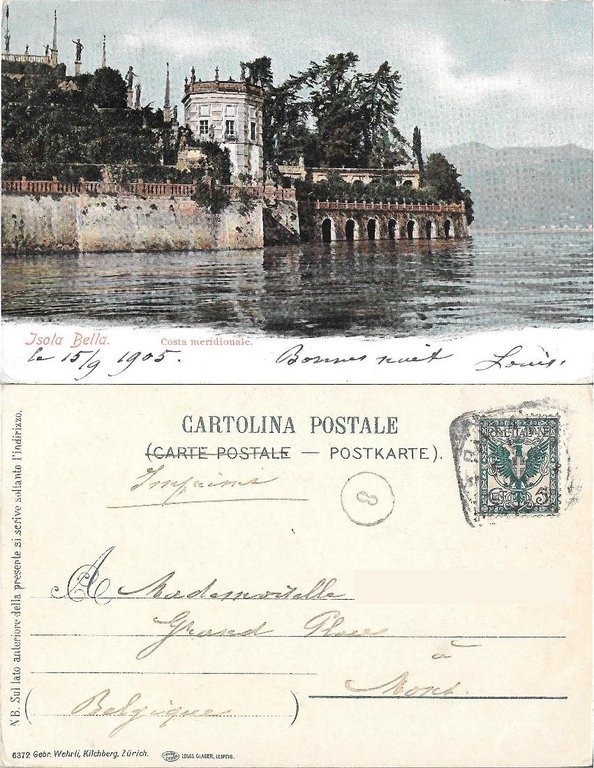 Isola Bella. Costa meridionale.
le 15/9 1905. Bonnes nuit Louis.
CARTOLINA POSTALE
(CARTE POSTALE — POSTKARTE).
Imprimé
8
POSTE ITALIANE
CENT. 5
A Mademoiselle
Grand Place
à
Mons.
(Belgique)
NB. Sul lato anteriore della presente si scrive soltanto l'indirizzo.
6372 Gebr. Wehrli, Kilchberg, Zürich.
LOUIS GLASER, LEIPZIG.